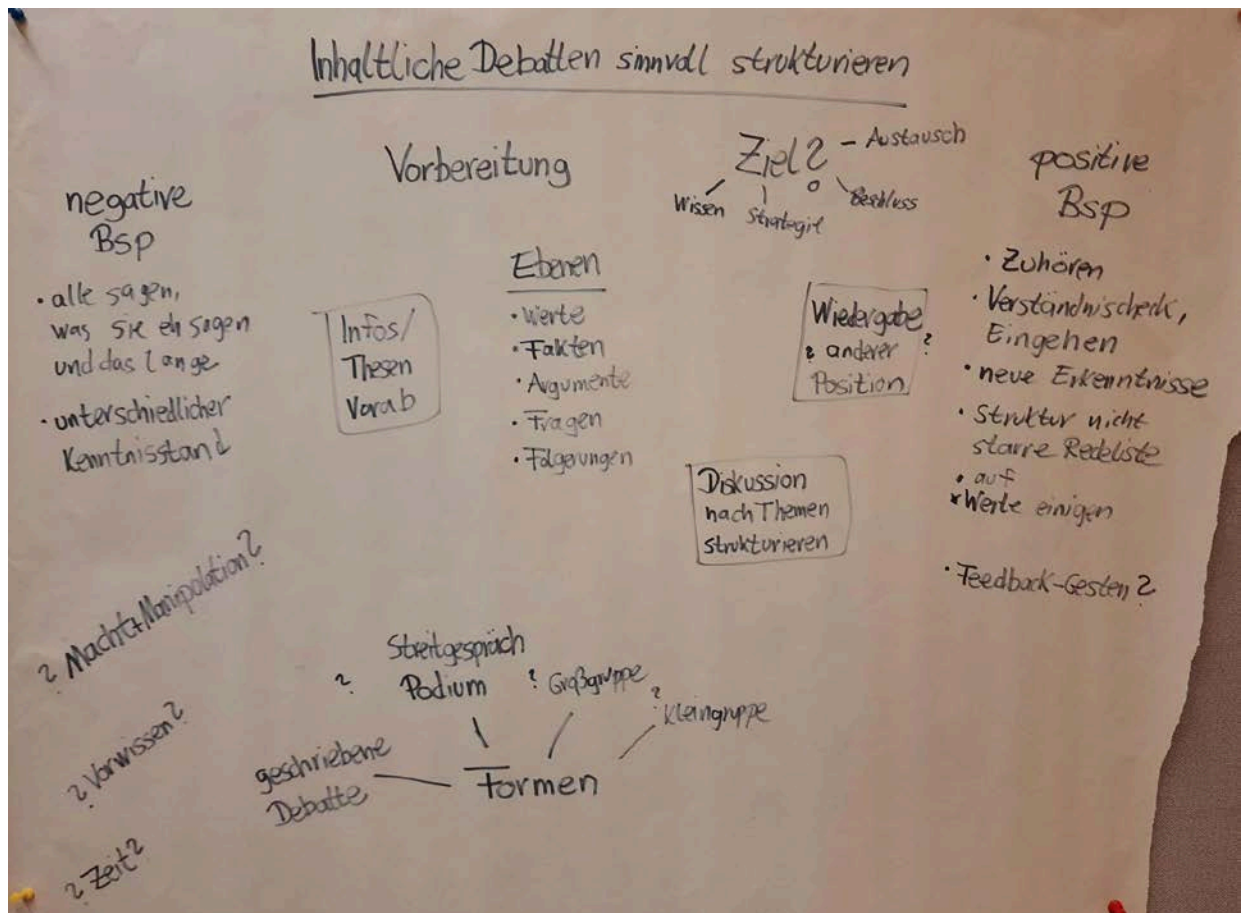 Inhaltliche Debatten sinnvoll strukturieren
negative
Bsp
• alle sagen,
was sie eh sagen
und das lange
• unterschiedlicher
Kenntnisstand
Vorbereitung
Infos/
Thesen
Vorab
Ebenen
• Werte
• Fakten
• Argumente
• Fragen
• Folgerungen
Ziel? – Austausch
Wissen
Strategie
Beschluss
Wiedergabe
? anderer ?
Position
Diskussion
nach Themen
strukturieren
positive
Bsp
• Zuhören
• Verständnischeck,
Eingehen
• neue Erkenntnisse
• Struktur nicht
starre Redeliste
• auf
Werte einigen
• Feedback-Gesten?
? Macht+Manipolation?
? Vorwissen?
? Zeit?
Streitgespräch
? Podium
? Großgruppe
? Kleingruppe
geschriebene
Debatte
Formen